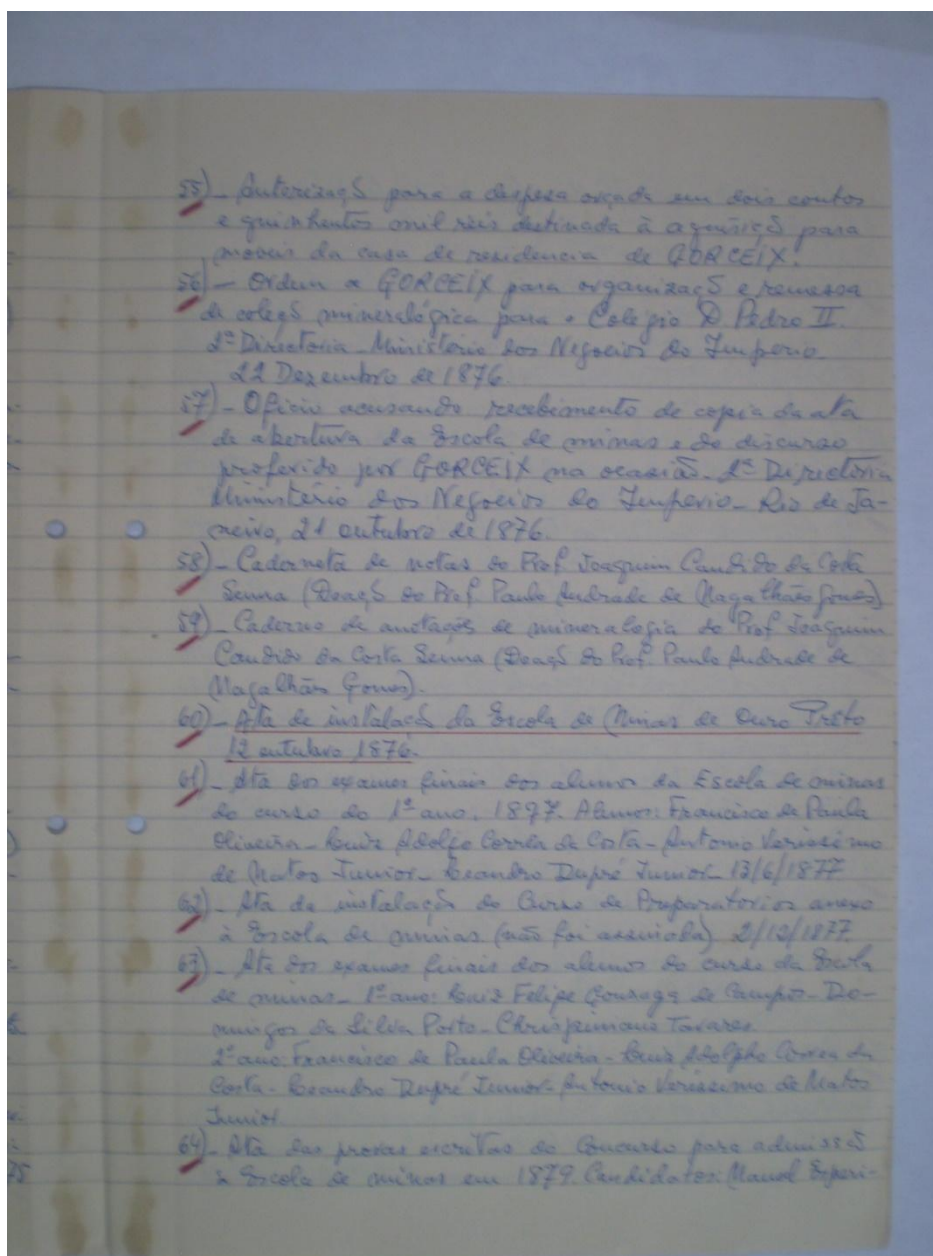 55) - Autorizaçõ para a despesa orçada em dois contos
e quinhentos mil reis destinada à aquisiçõ para
moveis da casa de residencia de GORCEIX.
56) - Ordem a GORCEIX para organizaçõ e remessa
de coleçõ mineralógica para o Colegio D. Pedro II.
2ª Directoria - Ministerio dos Negocios do Imperio.
22 Dezembro de 1876.
57) - Oficio acusando recebimento de copia da ata
de abertura da Escola de minas e do discurso
proferido por GORCEIX na ocasião - 2ª Directoria
Ministério dos Negocios do Imperio - Rio de Ja-
neiro, 21 outubro de 1876.
58) - Caderneta de notas do Prof. Joaquim Candido da Costa
Senna (Doaçõ do Prof. Paulo Andrade de Magalhães Gomes)
59) - Caderno de anotações de mineralogia do Prof Joaquim
Candido da Costa Senna (Doaçõ do Prof. Paulo Andrade de
Magalhães Gomes).
60) - Ata de instalaçõ da Escola de Minas de Ouro Preto
12 outubro 1876.
61) - Ata dos exames finais dos alumos da Escola de minas
do curso do 1º ano. 1897. Alumos: Francisco de Paula
Oliveira - Luiz Adolfo Correa da Costa - Antonio Verissimo
de Matos Junior - Leandro Dupré Junior - 13/6/1877
62) - Ata da instalaçõ do Curso de Preparatorios anexo
à Escola de minas (não foi assinada) 2/12/1877
63) - Ata dos exames finais dos alumos do curso da Escola
de minas - 1º ano: Luiz Felipe Gonzaga de Campos - Do-
mingos da Silva Porto - Chrispiniano Tavares.
2º ano: Francisco de Paula Oliveira - Luiz Adolpho Correa da
Costa - Leandro Dupré Junior - Antonio Verissimo de Matos
Junior.
64) - Ata das provas escritas do Concurso para admissõ
à Escola de minas em 1879. Candidatos: Manoel Esperi-
75